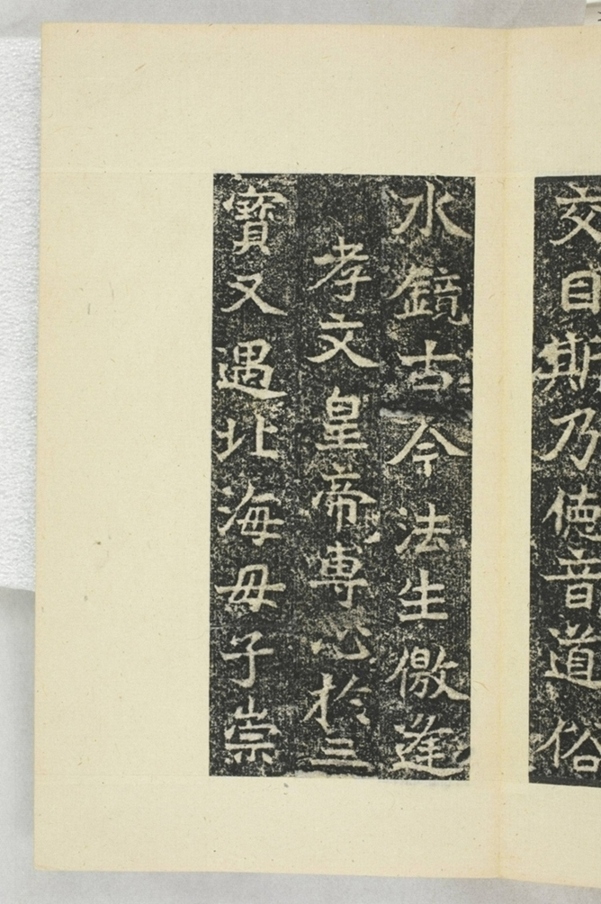 交自斯乃德音道俗
水鏡古今法生儌逢
孝文皇帝專心於三
寶又遇北海母子崇